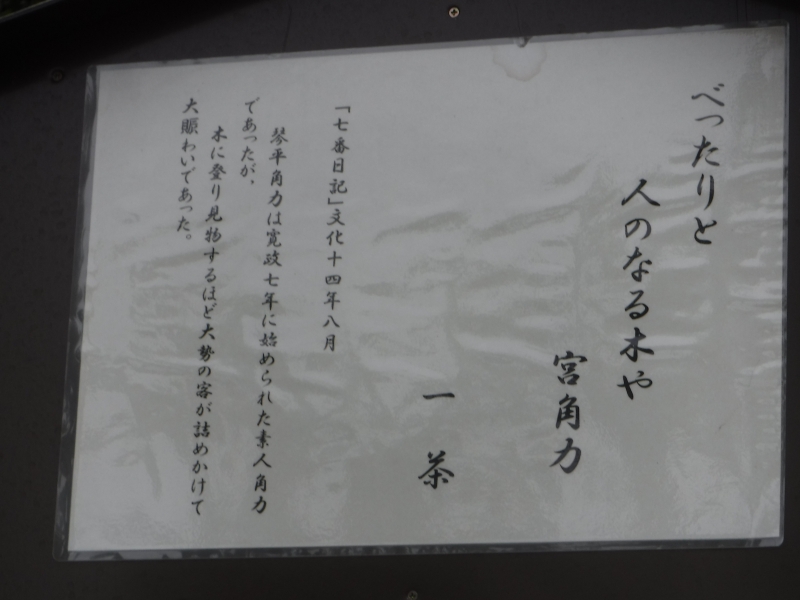 べったりと
人のなる木や
宮角力
一茶
「七番日記」文化十四年八月
琴平角力は寛政七年に始められた素人角力
であったが、
木に登り見物するほど大勢の客が詰めかけて
大賑わいであった。